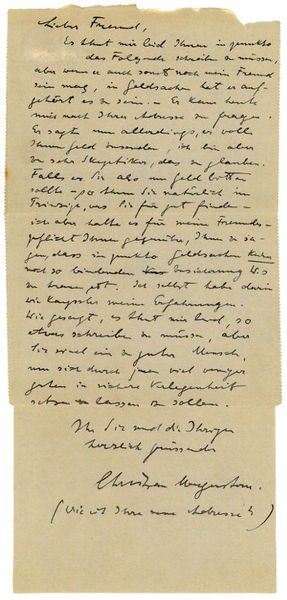 Lieber Freund,
Es thut mir leid Ihnen in punkto
das Folgende schreiben zu müssen,
aber wenn er auch sonst noch mein Freund
sein mag, in Geldsachen hat er auf-
gehört es zu sein. – Er kam heute
mich nach Ihrer Adresse zu fragen.
Er sagte mir allerdings, er wolle
Ihnen Geld zusenden, ich bin aber
zu sehr Skeptiker, das zu glauben.
Falls er Sie also um Geld bitten
sollte – so thun Sie natürlich im
Übrigen, was Sie für gut finden –
ich aber halte es für meine Freundes-
pflicht Ihnen gegenüber, Ihnen zu sa-
gen, dass in punkto Geldsachen keiner
noch so bindenden Versicherung
zu trauen ist. Ich selbst habe darin
meine Erfahrungen.
Wie gesagt, es thut mir leid, so
etwas schreiben zu müssen, aber
Sie sind ein zu guter Mensch,
um sich durch viel weniger
gute in sichere Verlegenheit
setzen lassen zu sollen.
Ihr Sie und die Ihrigen
herzlich grüssender
Christian Morgenstern.
(Wie ist Ihre neue Adresse?)